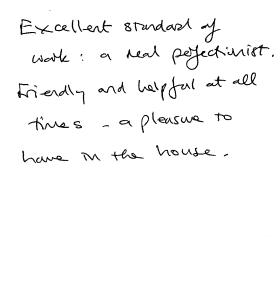 Excellent standard of
work : a real perfectionist.
Friendly and helpful at all
times - a pleasure to
have in the house.